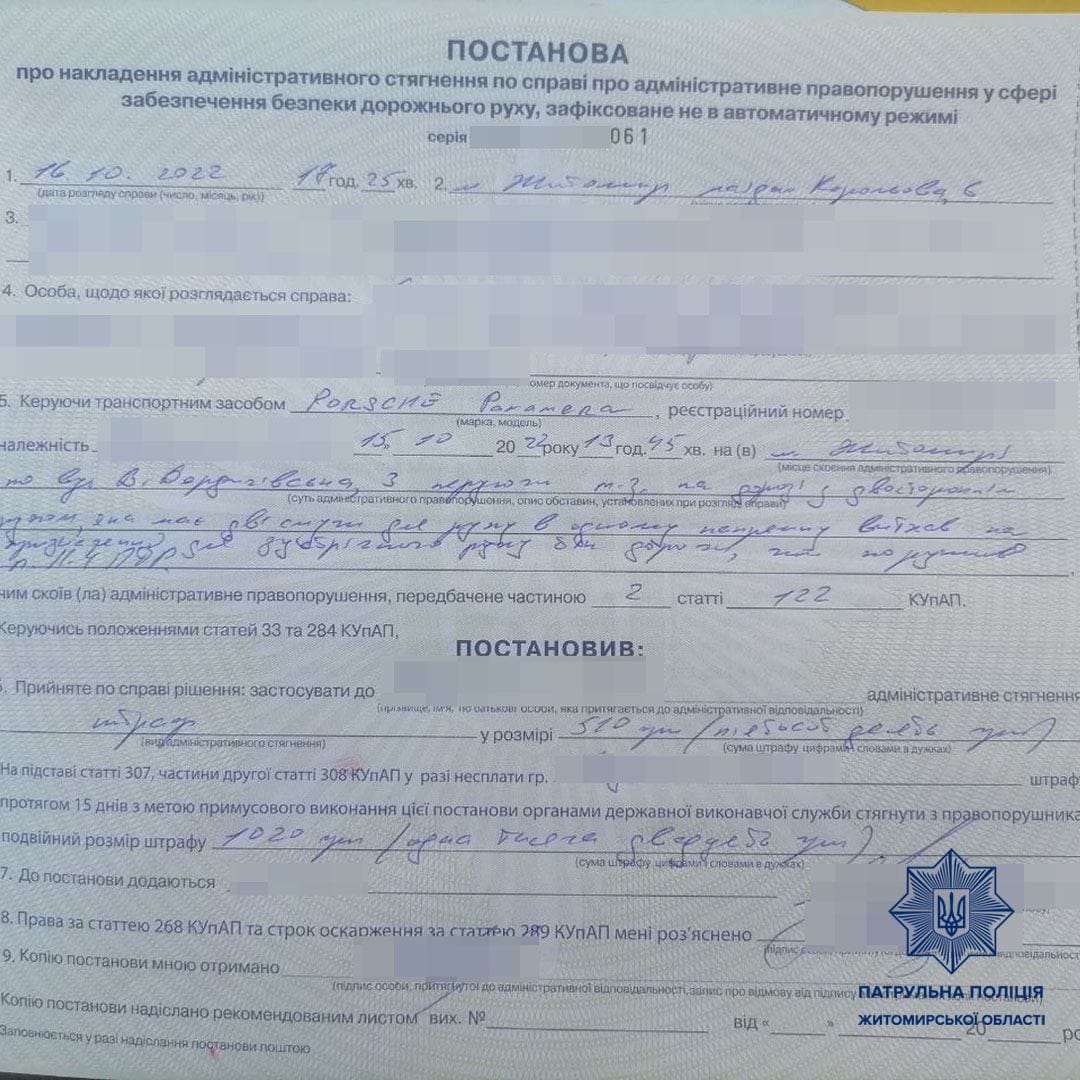 ПОСТАНОВА
про накладення адміністративного стягнення по справі про адміністративне правопорушення у сфері
забезпечення безпеки дорожнього руху, зафіксоване не в автоматичному режимі
серія 061
1. 16. 10. 2022 17 год. 25 хв. 2. м Житомир майдан Корольова, 6
(дата розгляду справи (число, місяць, рік))
3.
4. Особа, щодо якої розглядається справа:
омер документа, що посвідчує особу)
5. Керуючи транспортним засобом Porsche Panamera, реєстраційний номер
(марка, модель)
належність 15. 10 20 22 року 13 год. 45 хв. на (в) м. Житомирі
(місце скоєння адміністративного правопорушення)
по вул В. Бердичівська, 3 керуючи т.з. на дорозі з двостороннім
(суть адміністративного правопорушення, опис обставин, установлених при розгляді справи)
рухом, яка має дві смуги для руху в одному напрямку виїхав на
для зустрічного руху бік дороги, чим порушив
п. 11.4 ПДР
чим скоїв (ла) адміністративне правопорушення, передбачене частиною 2 статті 122 КУпАП.
Керуючись положеннями статей 33 та 284 КУпАП,
ПОСТАНОВИВ:
6. Прийняте по справі рішення: застосувати до адміністративне стягнення
(прізвище, ім'я, по батькові особи, яка притягається до адміністративної відповідальності)
штраф у розмірі 510 грн (п'ятьсот десять грн)
(вид адміністративного стягнення) (сума штрафу цифрами і словами в дужках)
На підставі статті 307, частини другої статті 308 КУпАП у разі несплати гр. штрафу
протягом 15 днів з метою примусового виконання цієї постанови органами державної виконавчої служби стягнути з правопорушника
подвійний розмір штрафу 1020 грн (одна тисяча двадцять грн).
(сума штрафу цифрами і словами в дужках)
7. До постанови додаються
8. Права за статтею 268 КУпАП та строк оскарження за статтею 289 КУпАП мені роз'яснено
9. Копію постанови мною отримано
(підпис особи, притягнутої до адміністративної відповідальності, запис про відмову від підпису
Копію постанови надіслано рекомендованим листом вих. № від « » 20
Заповнюється у разі надіслання постанови поштою
ПАТРУЛЬНА ПОЛІЦІЯ
ЖИТОМИРСЬКОЇ ОБЛАСТІ